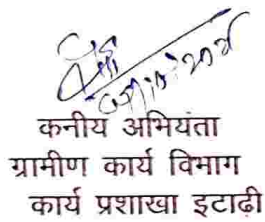 कनीय अभियंता
ग्रामीण कार्य विभाग
कार्य प्रशाखा इटाढ़ी